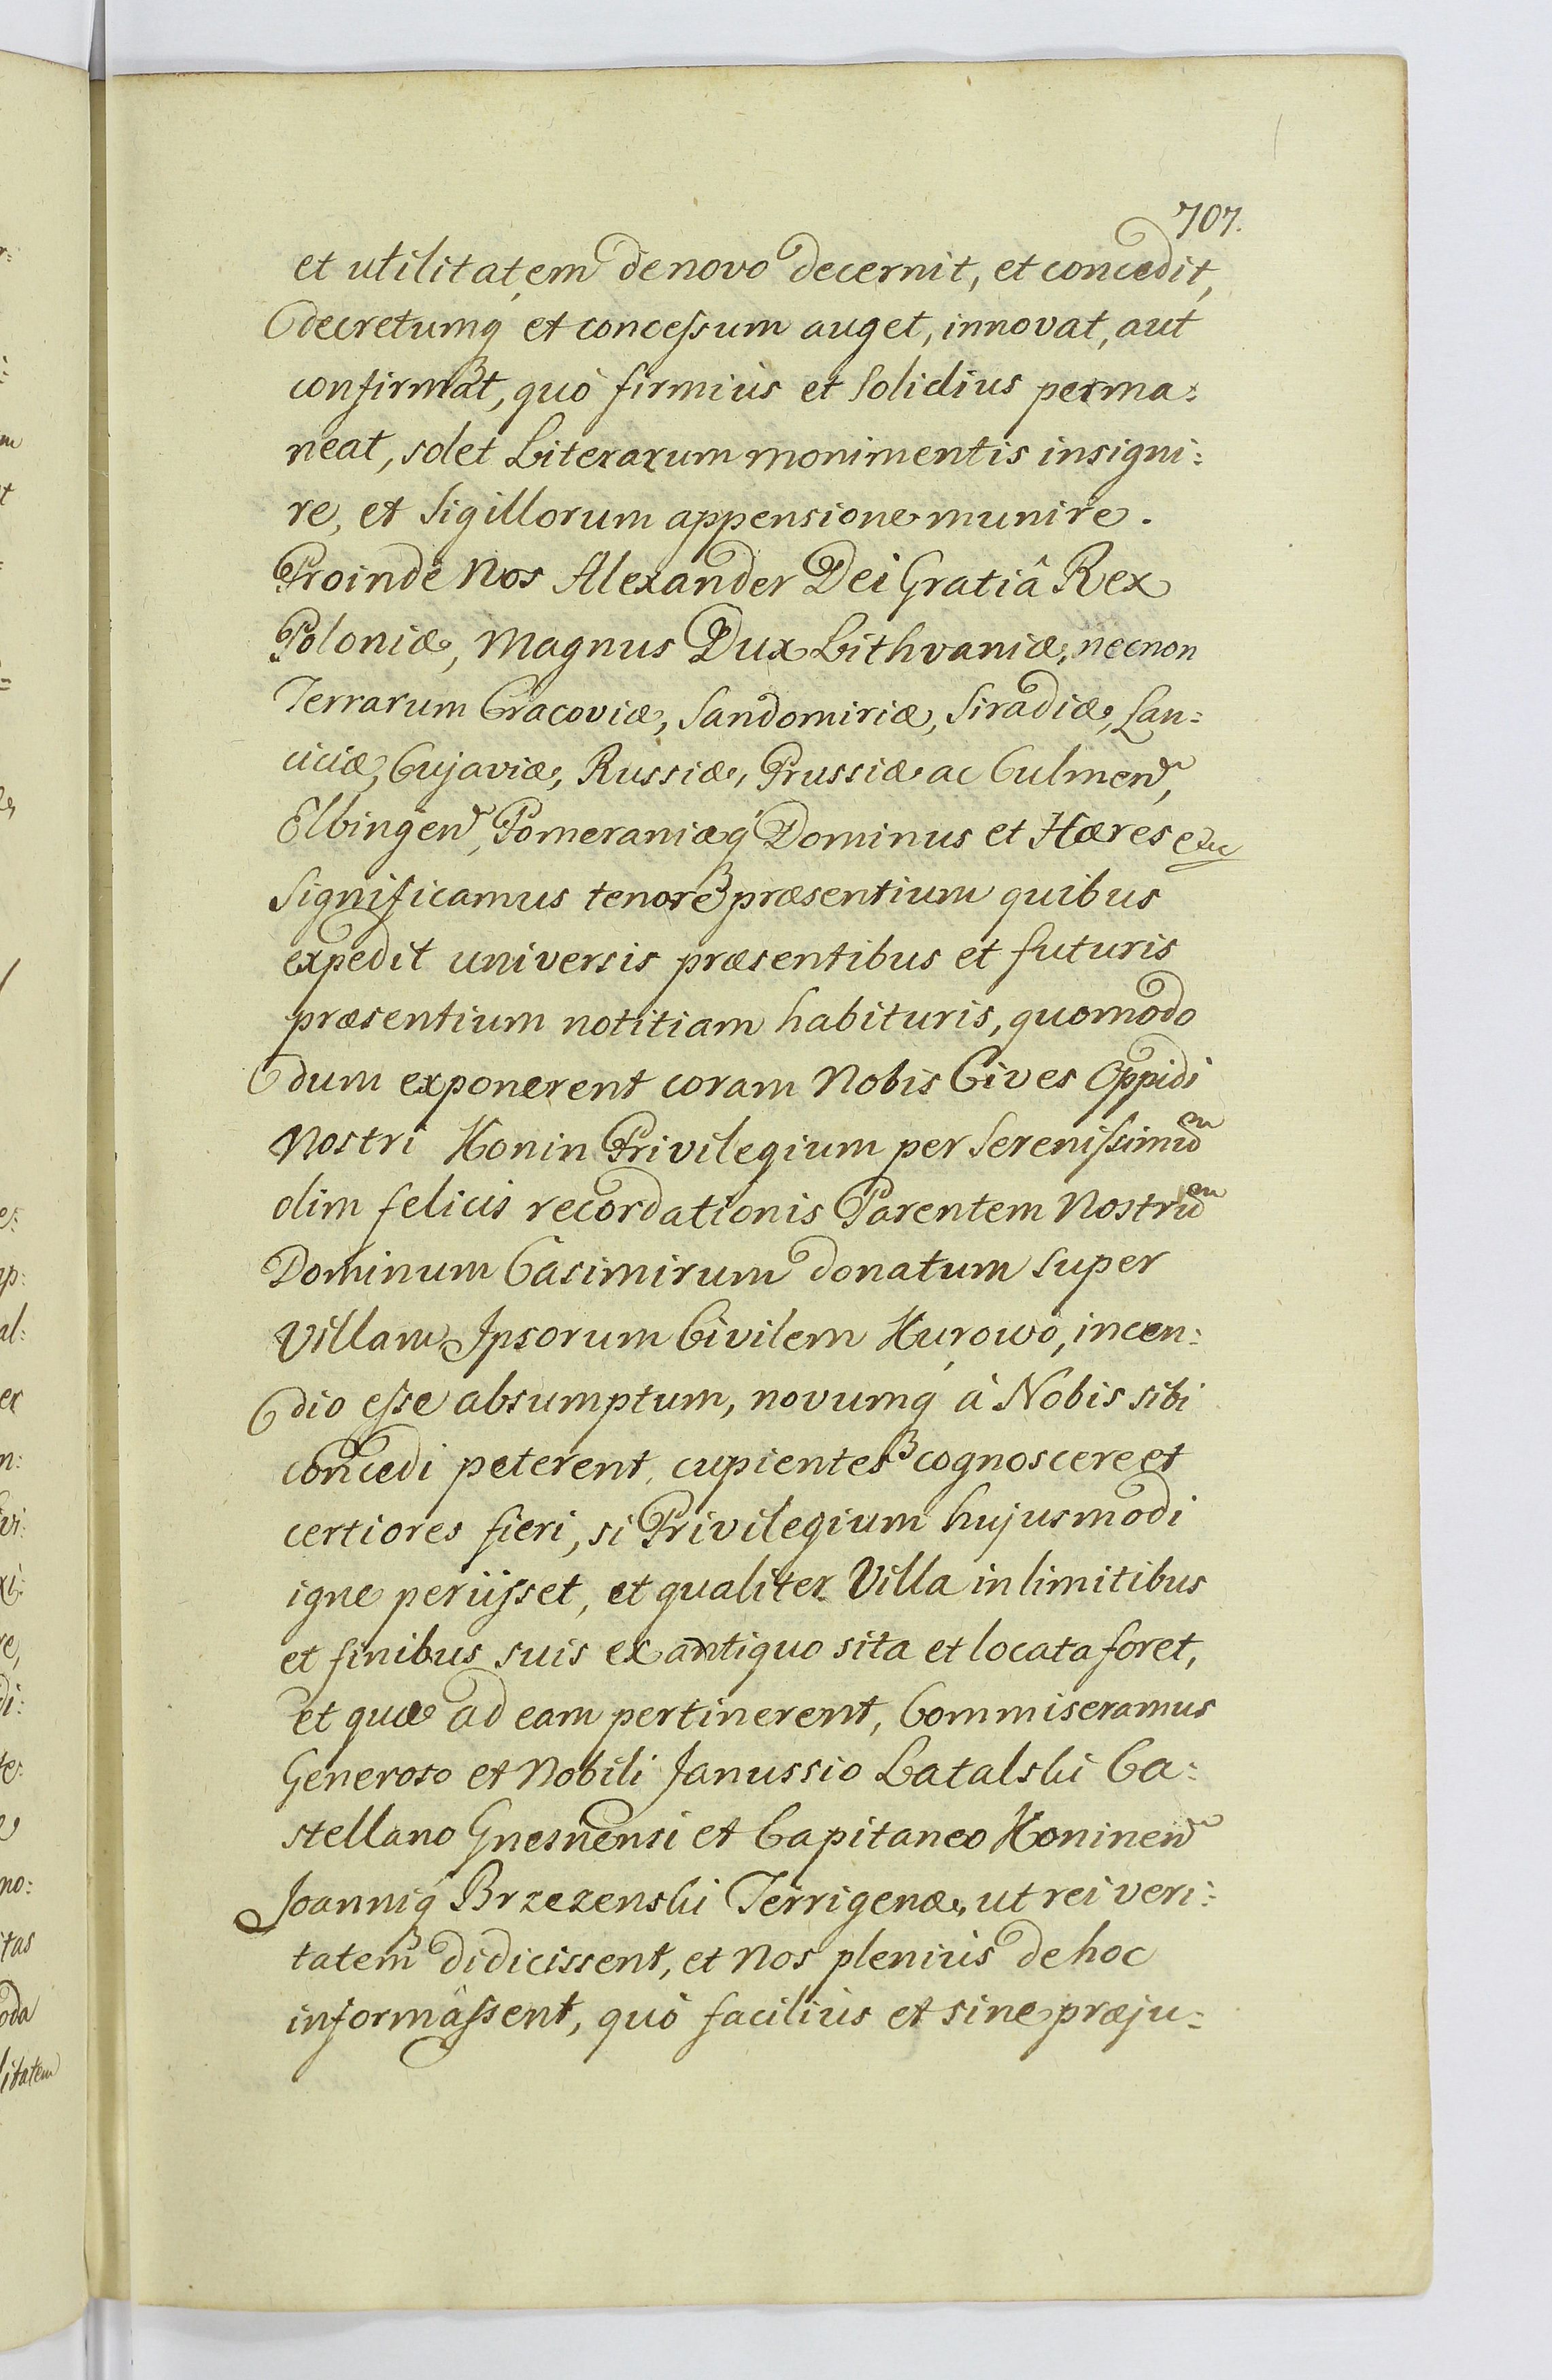 707.
et utilitatem denovo decernit, et concedit,
decretumq́ et concessum auget, innovat, aut
confirmat, quò firmiùs et solidius perma:
neat, solet Literarum monimentis insigni:
re, et Sigillorum appensione munire.
Proinde Nos Alexander Dei Gratiâ Rex
Poloniæ, Magnus Dux Lithvaniæ, necnon
Terrarum Cracoviæ, Sandomiriæ, Siradiæ, Lan:
ciciæ, Cujaviæ, Russiæ, Prussiæ ac Culmen̄,
Elbingen̄, Pomeraniæq́ Dominus et Hæres etc
Significamus tenore præsentium quibus
expedit universis præsentibus et futuris
præsentium notitiam habituris, quomodo
dum exponerent coram Nobis Cives Oppidi
Nostri Konin Privilegium per Serenissimū
olim felicis recordationis Parentem Nostrū
Dominum Casimirum donatum super
Villam Ipsorum Civilem Kurowo, incen:
dio esse absumptum, novumq́ à Nobis sibi
concedi peterent, cupientes cognoscere et
certiores fieri, si Privilegium hujusmodi
igne periisset, et qualiter Villa in limitibus
et finibus suis ex antiquo sita et locata foret,
et quæ ad eam pertinerent, Commiseramus
Generoso et Nobili Janussio Latalski Ca:
stellano Gnesnensi et Capitaneo Koninen̄
Joanniq́ Brzezenski Terrigenæ, ut rei veri:
tatem didicissent, et Nos pleniùs de hoc
informâssent, quò faciliùs et sine præju: